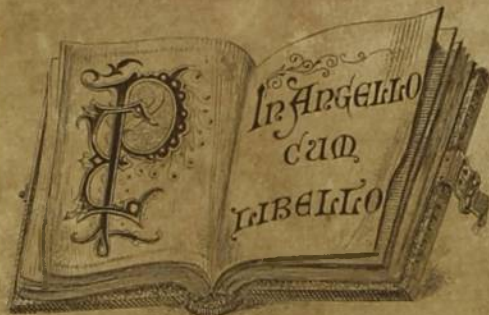 P
In Angello
cum
Libello